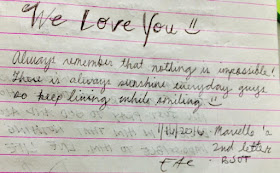 We Love You
Always remember that nothing is impossible!
There is always sunshine everyday guys
so keep living while smiling
2nd letter